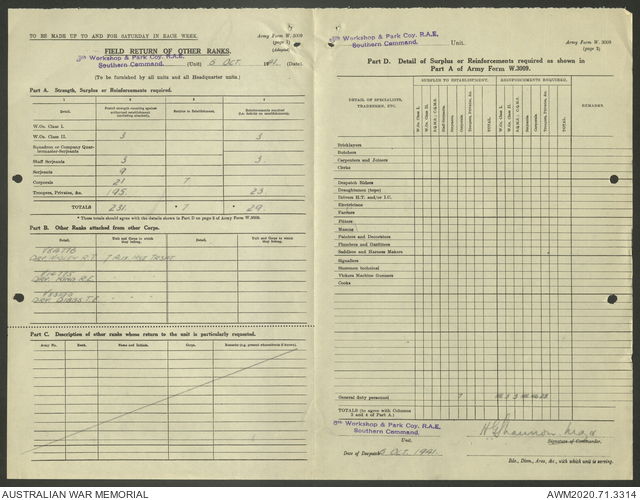 TO BE MADE UP TO AND FOR SATURDAY IN EACH WEEK.
Army Form W. 3009
(page 1)
FIELD RETURN OF OTHER RANKS.
5th Workshop & Park Coy. R.A.E.
Southern Command.
(Unit)
5 OCT. 1941
(Date).
(To be furnished by all units and all Headquarter units.)
Part A. Strength, Surplus or Reinforcements required.
1 2 3 4
Detail.
Posted strength counting against authorised establishment (excluding attached).
Surplus to Establishment.
Reinforcements required (i.e. deficits to establishment).
W.Os. Class I.
W.Os. Class II. 3 3
Squadron or Company Quartermaster-Serjeants
Staff Serjeants 3 3
Serjeants 9
Corporals 21 7
Troopers, Privates, &c. 195 23
TOTALS 231 * 7 * 29
* These totals should agree with the details shown in Part D on page 2 of Army Form W.3009.
Part B. Other Ranks attached from other Corps.
Detail. Unit and Corps to which they belong. Detail. Unit and Corps to which they belong.
Part C. Description of other ranks whose return to the unit is particularly requested.
Army No. Rank. Name and Initials. Corps. Remarks (e.g. present whereabouts if known).
5th Workshop & Park Coy. R.A.E.
Southern Command.
Unit.
Army Form W. 3009
(page 2)
Part D. Detail of Surplus or Reinforcements required as shown in
Part A of Army Form W.3009.
DETAIL OF SPECIALISTS, TRADESMEN, ETC.
SURPLUS TO ESTABLISHMENT.
REINFORCEMENTS REQUIRED.
REMARKS
W.Os. Class I.
W.Os. Class II.
S.Q.M.S.; C.Q.M.S.
Staff-Serjeants
Serjeants
Corporals
Troopers, Privates, &c.
TOTAL
W.Os. Class I.
W.Os. Class II.
S.Q.M.S.; C.Q.M.S.
Serjeants
Corporals
Troopers, Privates, &c.
TOTAL
Bricklayers
Butchers
Carpenters and Joiners
Clerks
Despatch Riders
Draughtsmen (topo)
Drivers H.T. and/or I.C.
Electricians
Farriers
Fitters
Masons
Painters and Decorators
Plumbers and Gasfitters
Saddlers and Harness Makers
Signallers
Storemen technical
Vickers Machine Gunners
Cooks
General duty personnel 7
TOTALS (to agree with Columns
3 and 4 of Part A.)
5th Workshop & Park Coy. R.A.E.
Southern Command.
Unit.
Signature of Commander.
Date of Despatch 5 OCT. 1941.
Bde., Divn., Area, &c., with which unit is serving.
AUSTRALIAN WAR MEMORIAL
AWM2020.71.3314